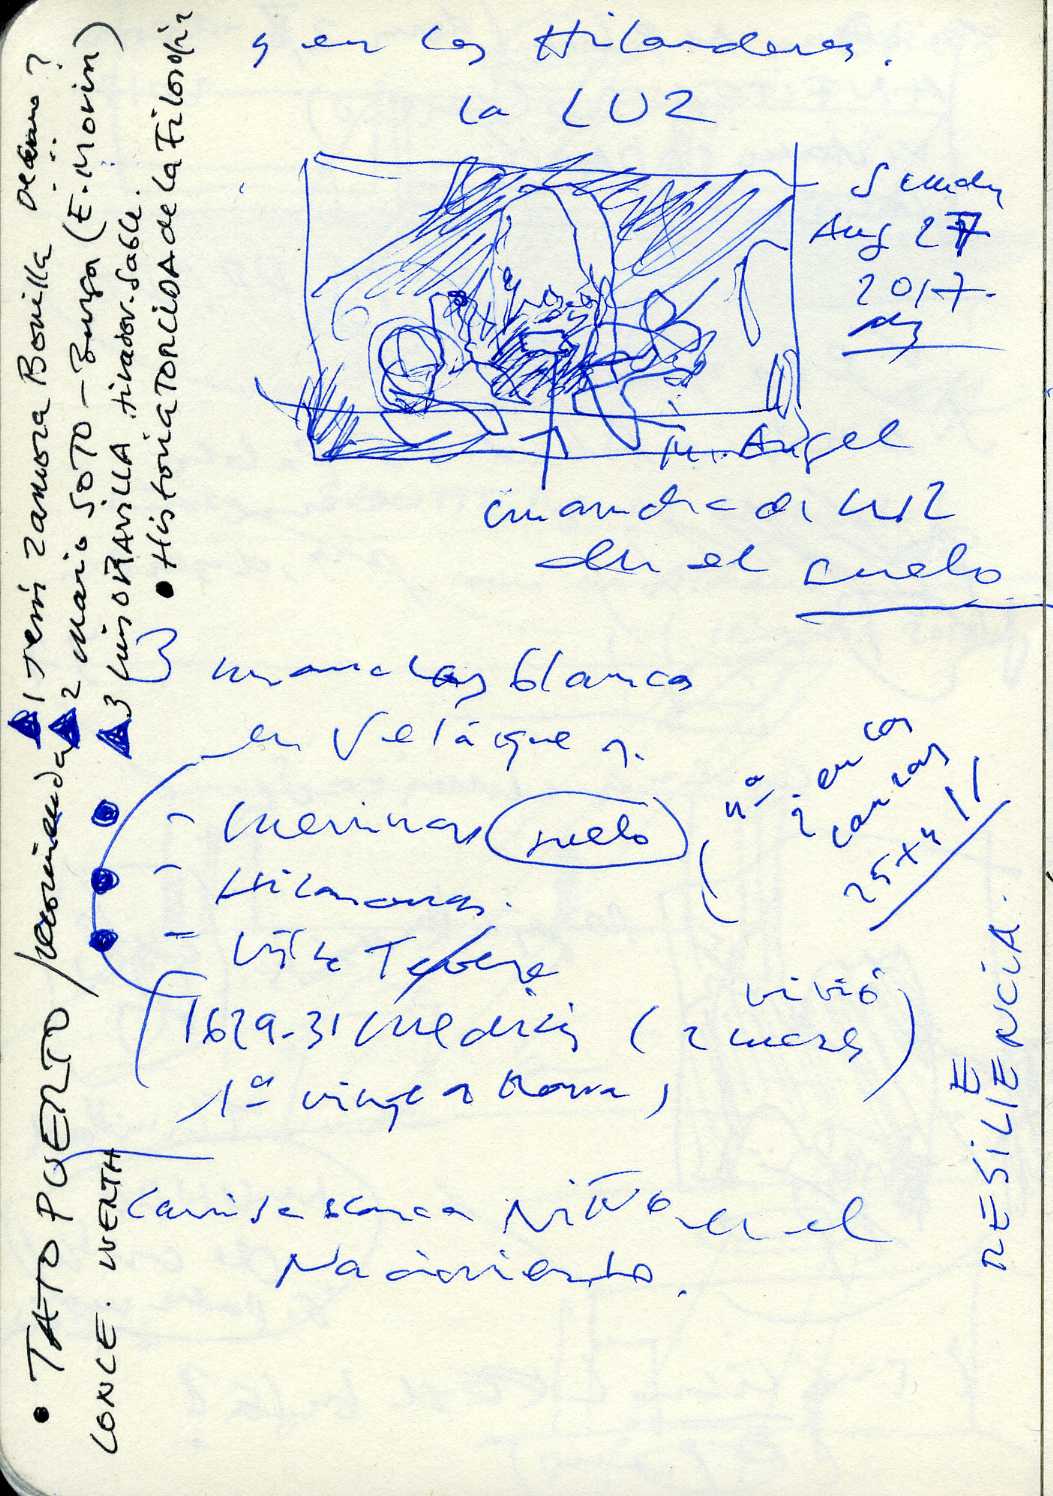 y en las Hilanderas.
la LUZ
Sunday
Aug 27
2017.
M. Angel
mancha de luz
en el suelo
3 manchas blancas
en Velázquez.
- Meninas (suelo)
nº
2 en las
lanzas
25+4
- Hilanderas.
- Vista Tevere
1629-31 Medicis (2 meses vivió)
1er viaje a Roma,
Camisa blanca Niño en el
Nacimiento.
RESILIENCIA.
E
• TATO PUERTO / recomienda
LONCE. WERTH
1 Jesús Zamora Bonilla Decano?
2 Mario SOTO - Bunga (E. Morin)
3 Luis ORAVILLA tirador. Sable.
• Historia TORCIDA de la Filosofía